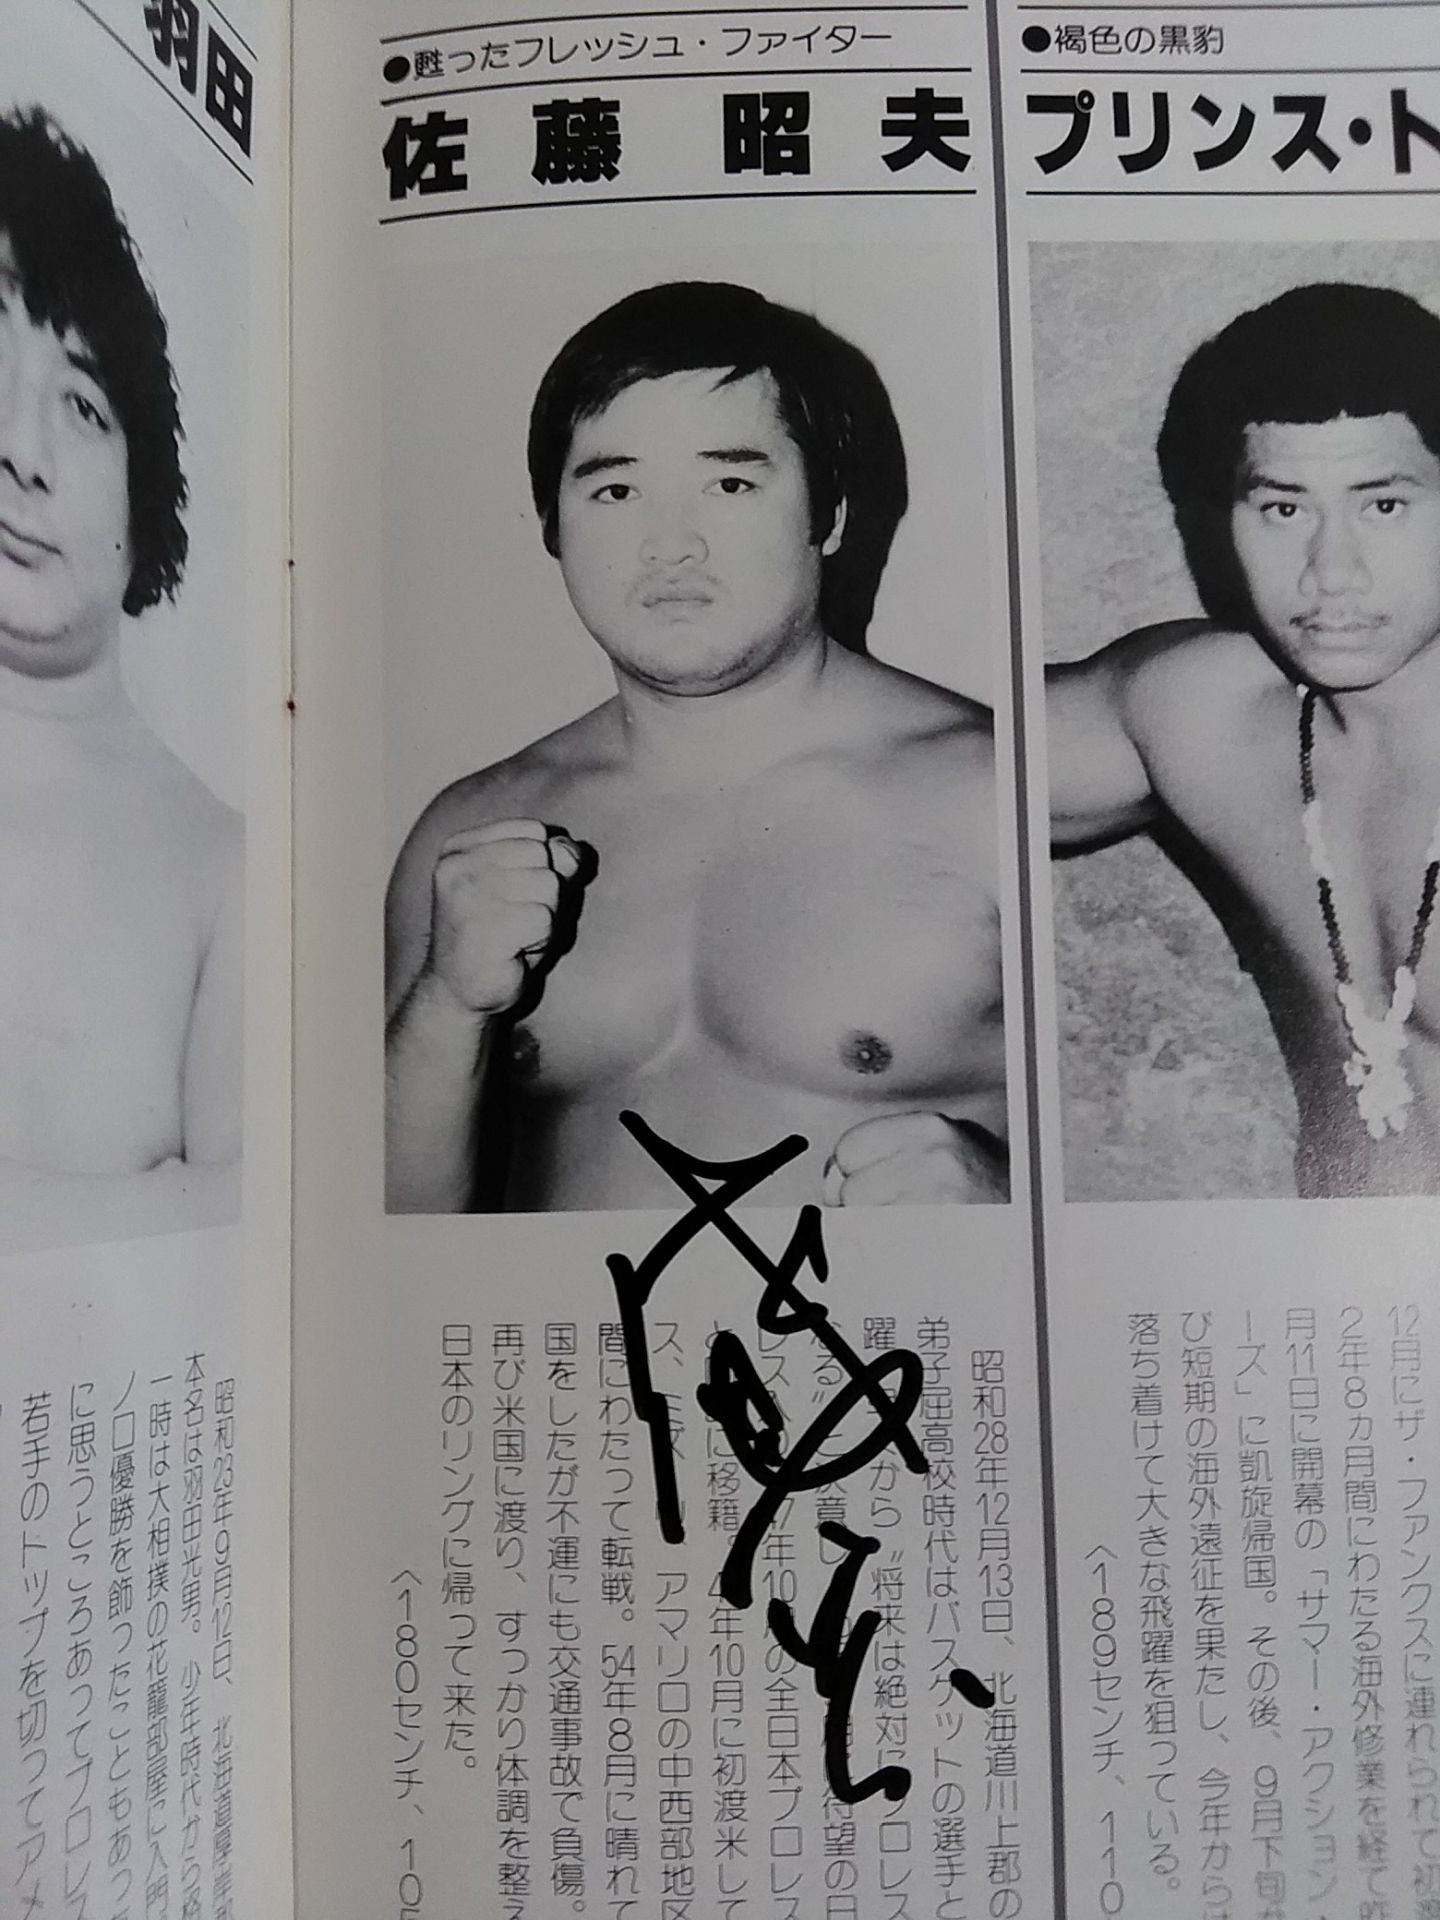 羽田
●甦ったフレッシュ・ファイター
佐藤昭夫
昭和28年12月13日、北海道川上郡の
弟子屈高校時代はバスケットの選手と
躍 から〝将来は絶対に プロレス
なる〟 決意し 待望の日
レス 47年10月の全日本プロレス
と に移籍。 年10月に初渡米して
ス、ミズ アマリロの中西部地区
間にわたって転戦。54年8月に晴れて
国をしたが不運にも交通事故で負傷。
再び米国に渡り、すっかり体調を整え
日本のリングに帰って来た。
〈180センチ、10
●褐色の黒豹
プリンス・ト
12月にザ・ファンクスに連れられて初
2年8ヵ月間にわたる海外修業を経て昨
月11日に開幕の「サマー・アクション・
ーズ」に凱旋帰国。その後、9月下旬か
び短期の海外遠征を果たし、今年からは
落ち着けて大きな飛躍を狙っている。
〈189センチ、110
昭和23年9月12日、北海道厚岸郡
本名は羽田光男。少年時代から格
一時は大相撲の花籠部屋に入門
ノ口優勝を飾ったこともあっ
に思うところあってプロレス
若手のトップを切ってアメ